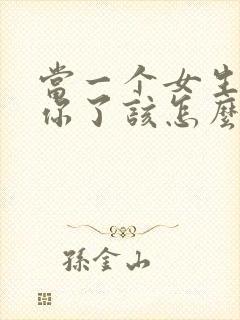 當一个女生
你了該怎麼
孫金山